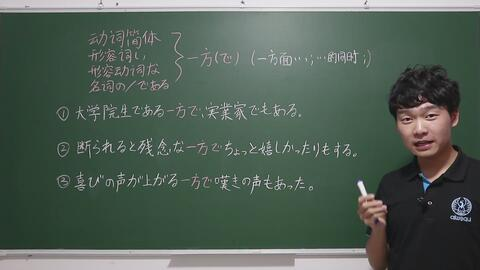 动词简体
形容词い
形容动词な
名词の/である
一方(で) (一方面…;…的同时;)
①大学院生である一方で、実業家でもある。
②断られると残念な一方でちょっと嬉しかったりもする。
③喜びの声が上がる一方で嘆きの声もあった。